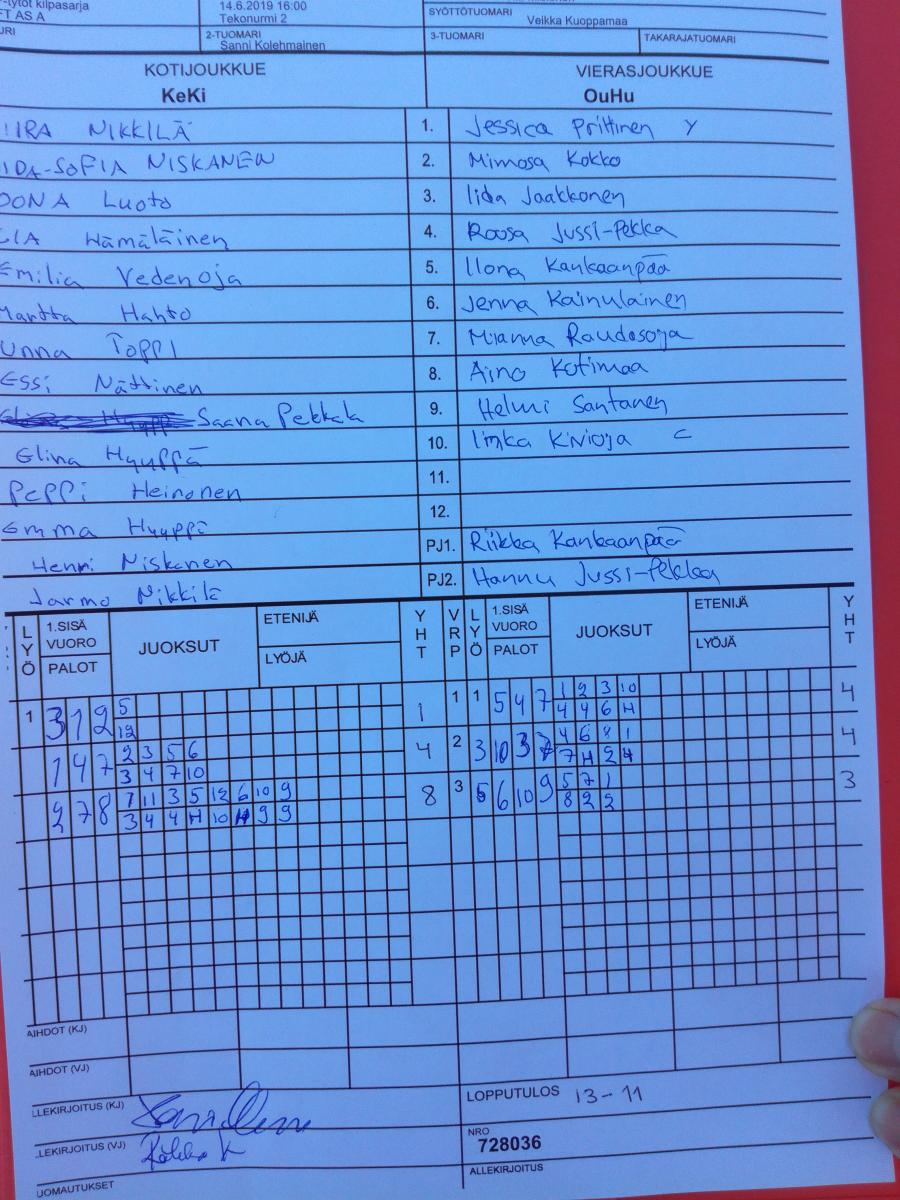 -tytöt kilpasarja 14.6.2019 16:00
FT AS A Tekonurmi 2 SYÖTTÖTUOMARI Veikka Kuoppamaa
URI 2-TUOMARI Sanni Kolehmainen 3-TUOMARI TAKARAJATUOMARI
KOTIJOUKKUE VIERASJOUKKUE
KeKi OuHu
IIRA NIKKILÄ 1. Jessica Prittinen Y
IDA-SOFIA NISKANEN 2. Mimosa Kokko
OONA Luoto 3. Iida Jaakkonen
Hämäläinen 4. Roosa Jussi-Pekka
Emilia Vedenoja 5. Ilona Kankaanpää
Martta Hahto 6. Jenna Kainulainen
unna Toppi 7. Mianna Raudasoja
Essi Nättinen 8. Aino Kotimaa
Saana Pekkala 9. Helmi Santanen
Elina Hyyppä 10. Iinka Kivioja C
Peppi Heinonen 11.
Emma Hyyppä 12.
Henri Niskanen PJ1. Riikka Kankaanpää
Jarmo Nikkilä PJ2. Hannu Jussi-Pekka
LYÖ 1.SISÄ VUORO PALOT JUOKSUT ETENIJÄ LYÖJÄ YHT VRP LYÖ 1.SISÄ VUORO PALOT JUOKSUT ETENIJÄ LYÖJÄ YHT
1 3 1 2 5 1 1 1 5 4 7 1 2 3 10 4
12 4 4 6 H
1 4 7 2 3 5 6 4 2 3 10 3 7 4 6 8 1 4
3 4 7 10 7 H 2 4
2 7 8 7 11 3 5 12 6 10 9 8 3 5 6 10 9 5 7 1 3
3 4 4 H 10 H 9 9 8 2 2
AIHDOT (KJ)
AIHDOT (VJ)
LLEKIRJOITUS (KJ) LOPPUTULOS 13-11
LLEKIRJOITUS (VJ) Riikka K NRO 728036
UOMAUTUKSET ALLEKIRJOITUS